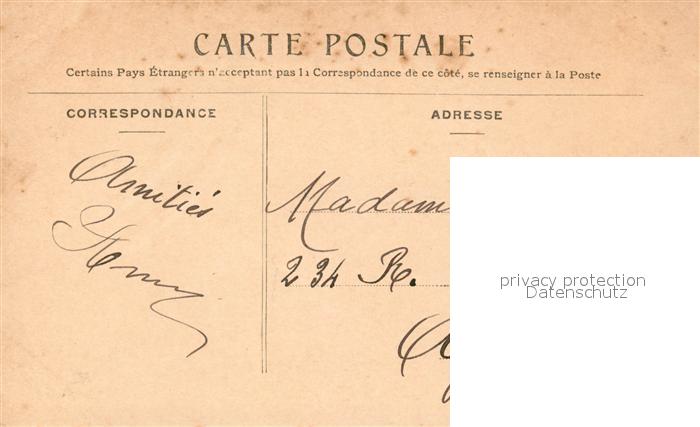 CARTE POSTALE
Certains Pays Étrangers n'acceptant pas la Correspondance de ce côté, se renseigner à la Poste
CORRESPONDANCE
ADRESSE
Amitiés
Madam
234 R.
privacy protection
Datenschutz